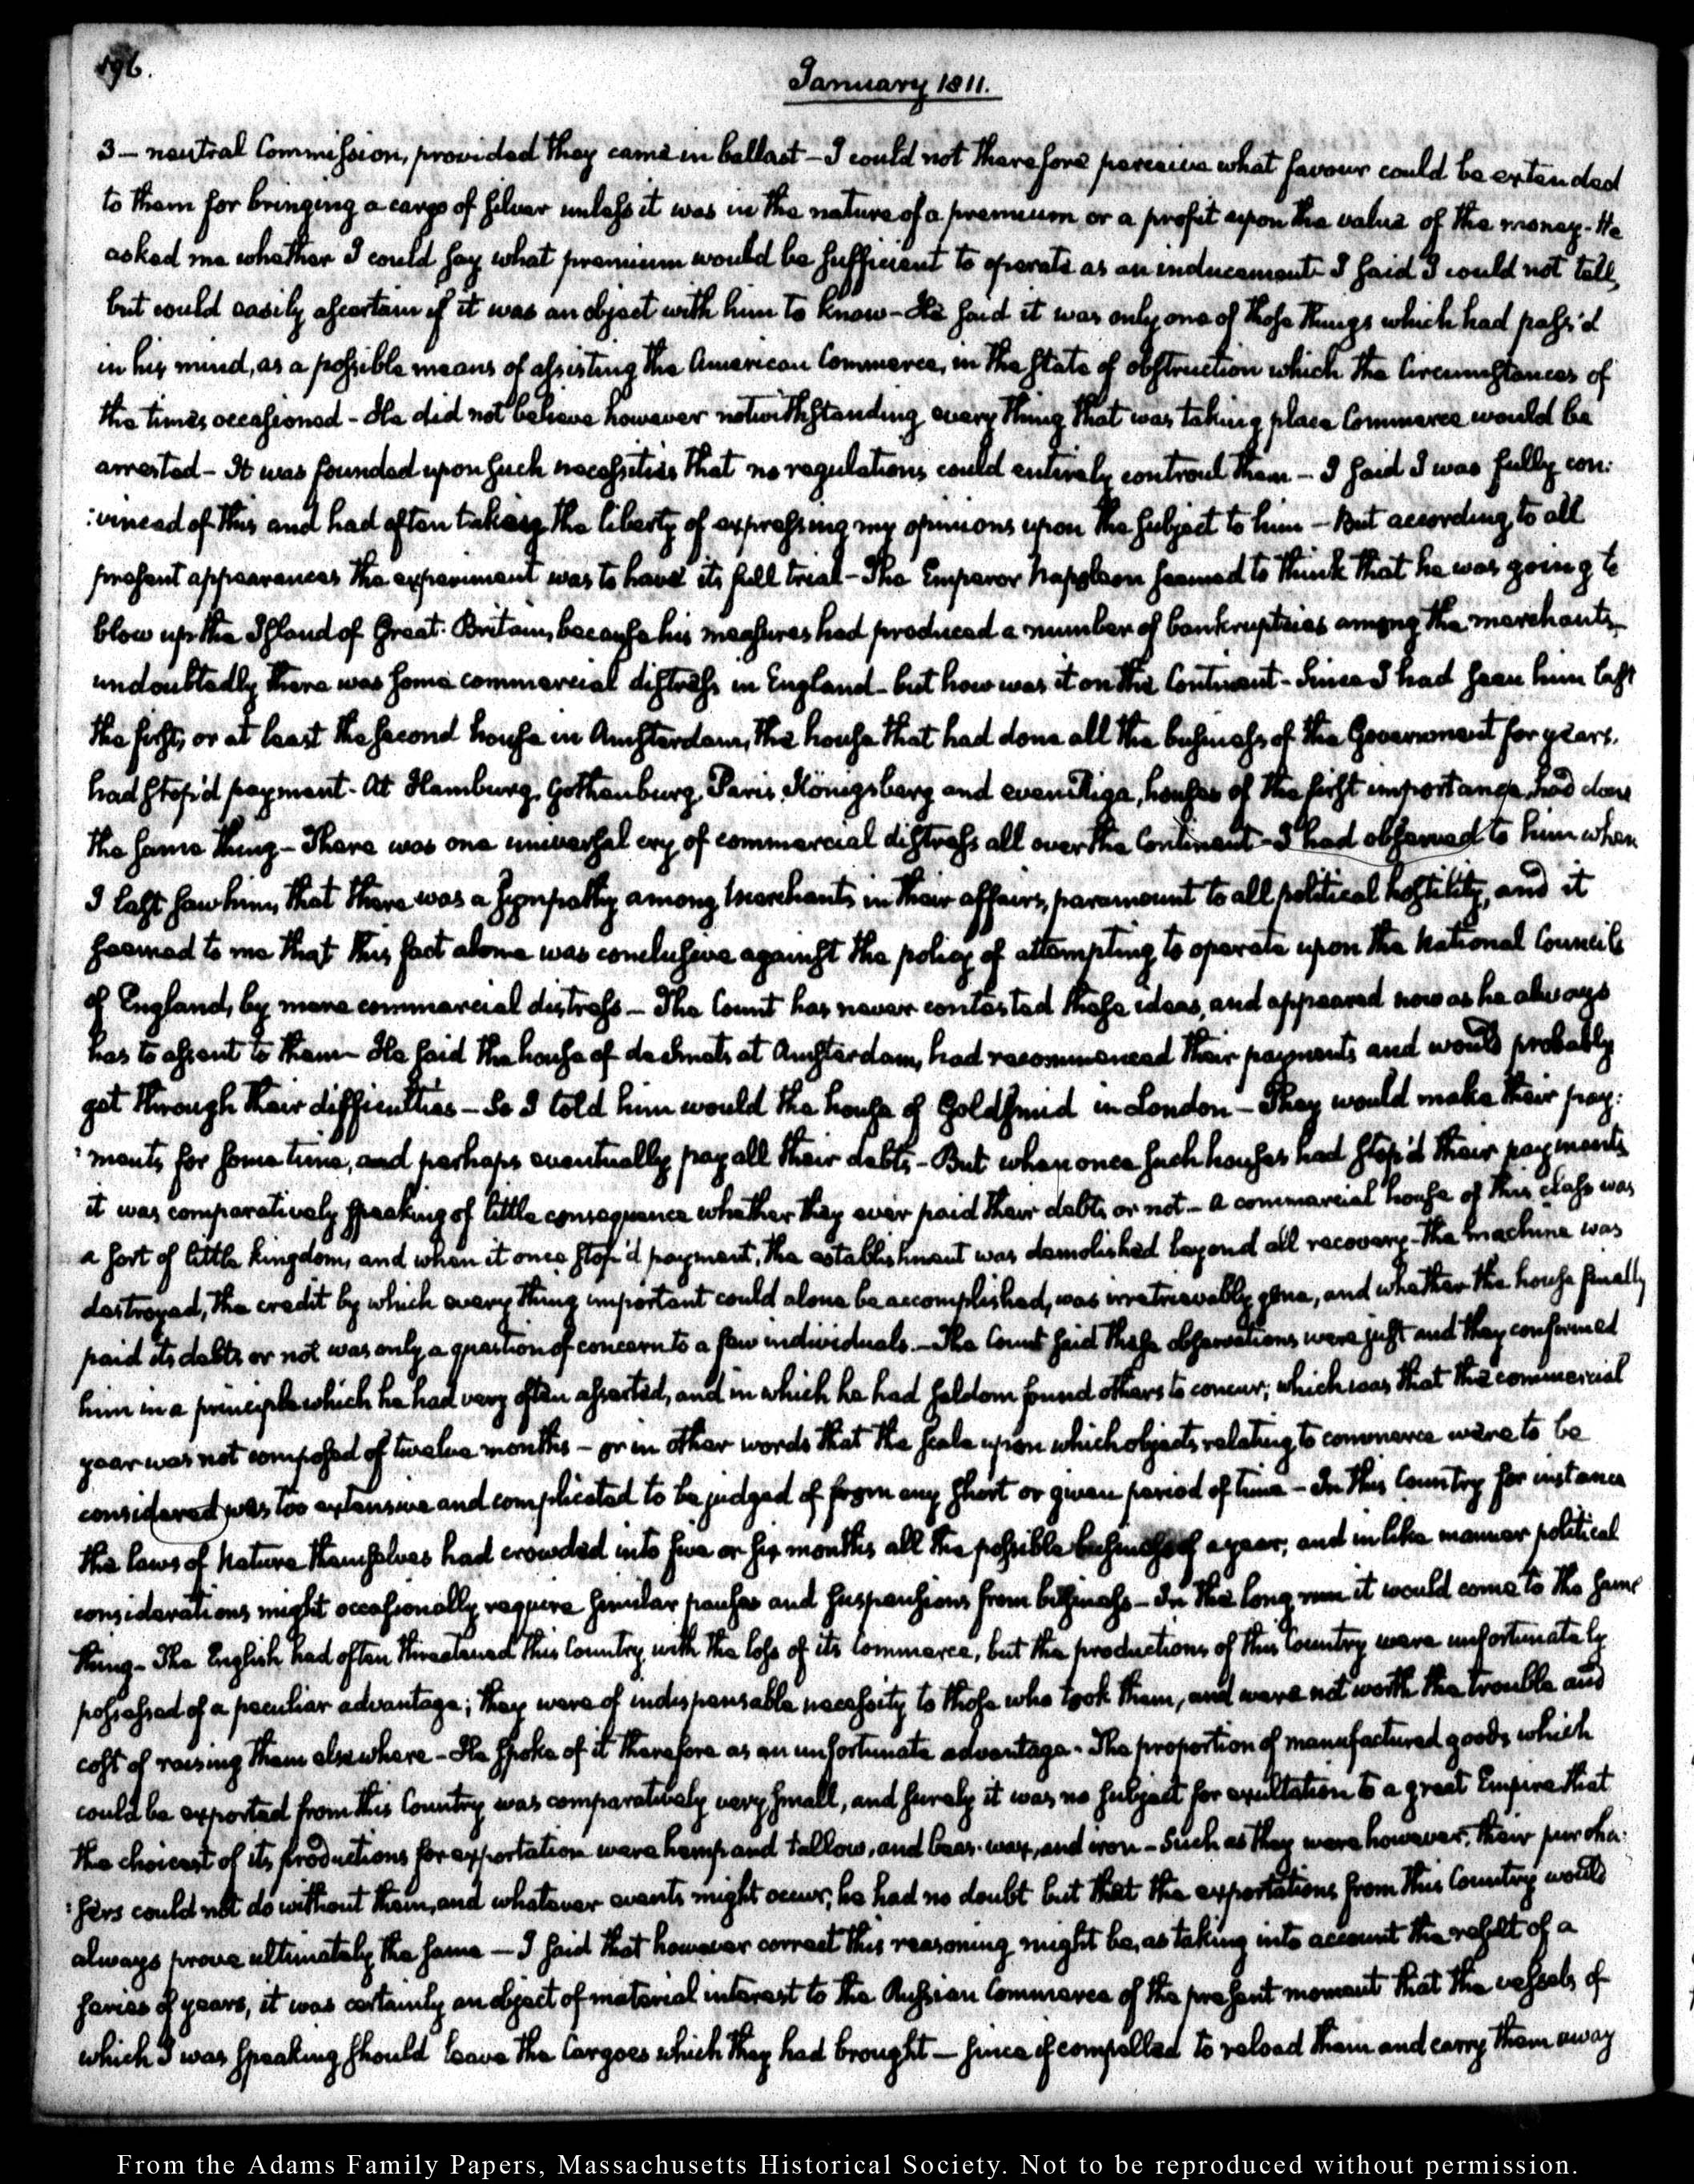 196.
January 1811.
3 — neutral Commission, provided they came in ballast – I could not therefore perceive what favour could be extended
to them for bringing a cargo of silver unless it was in the nature of a premium or a profit upon the value of the money. He
asked me whether I could say what premium would be sufficient to operate as an inducement – I said I could not tell,
but could easily ascertain if it was an object with him to know – He said it was only one of those things which had pass'd
in his mind, as a possible means of assisting the American Commerce, in the State of obstruction which the Circumstances of
the times occasioned – He did not believe however notwithstanding every thing that was taking place Commerce would be
arrested – It was founded upon such necessities that no regulations could entirely controul them – I said I was fully con:
:vinced of this and had often taken the liberty of expressing my opinions upon the subject to him – But according to all
present appearances the experiment was to have its full trial – The Emperor Napoleon seemed to think that he was going to
blow up the Island of Great-Britain, because his measures had produced a number of bankruptcies among the merchants –
undoubtedly there was some commercial distress in England – but how was it on the Continent – Since I had seen him last
the first, or at least the second house in Amsterdam, the house that had done all the business of the Government for years.
had stop'd payment – At Hamburg, Gothenburg, Paris, Königsberg and even Riga, houses of the first importance, had done
the same thing – There was one universal cry of commercial distress all over the Continent – I had observed to him when
I last saw him, that there was a sympathy among Merchants in their affairs, paramount to all political hostility, and it
seemed to me that this fact alone was conclusive against the policy of attempting to operate upon the National Councils
of England, by mere commercial distress – The Count has never contested these ideas, and appeared now as he always
has to assent to them – He said the house of de Smets at Amsterdam, had recommenced their payments and would probably
get through their difficulties – So I told him would the house of Goldsmid in London – They would make their pay:
:ments for some time, and perhaps eventually pay all their debts – But when once such houses had stop'd their payments
it was comparatively speaking of little consequence whether they ever paid their debts or not – A commercial house of this class was
a sort of little kingdom, and when it once stop'd payment, the establishment was demolished beyond all recovery – The machine was
destroyed, the credit by which every thing important could alone be accomplished, was irretrievably gone, and whether the house finally
paid its debts or not was only a question of concern to a few individuals. – The Count said these observations were just and they confirmed
him in a principle which he had very often asserted, and in which he had seldom found others to concur; which was that the commercial
year was not composed of twelve months – or in other words that the scale upon which objects relating to commerce were to be
considered was too extensive and complicated to be judged of from any short or given period of time – In this Country for instance
the laws of Nature themselves had crowded into five or six months all the possible business of a year; and in like manner political
considerations might occasionally require similar pauses and suspensions from business – In the long run it would come to the same
thing – The English had often threatened this Country with the loss of its Commerce, but the productions of this Country were unfortunately
possessed of a peculiar advantage; they were of indispensable necessity to those who took them, and were not worth the trouble and
cost of raising them elsewhere – He spoke of it therefore as an unfortunate advantage – The proportion of manufactured goods which
could be exported from this Country was comparatively very small, and surely it was no subject for exultation to a great Empire that
the choicest of its productions for exportation were hemp and tallow, and bees-wax, and iron – Such as they were however, their purcha:
:sers could not do without them, and whatever events might occur, he had no doubt but that the exportations from this Country would
always prove ultimately the same — I said that however correct this reasoning might be, as taking into account the result of a
series of years, it was certainly an object of material interest to the Russian Commerce of the present moment that the vessels of
which I was speaking should leave the Cargoes which they had brought – since if compelled to reload them and carry them away
From the Adams Family Papers, Massachusetts Historical Society. Not to be reproduced without permission.